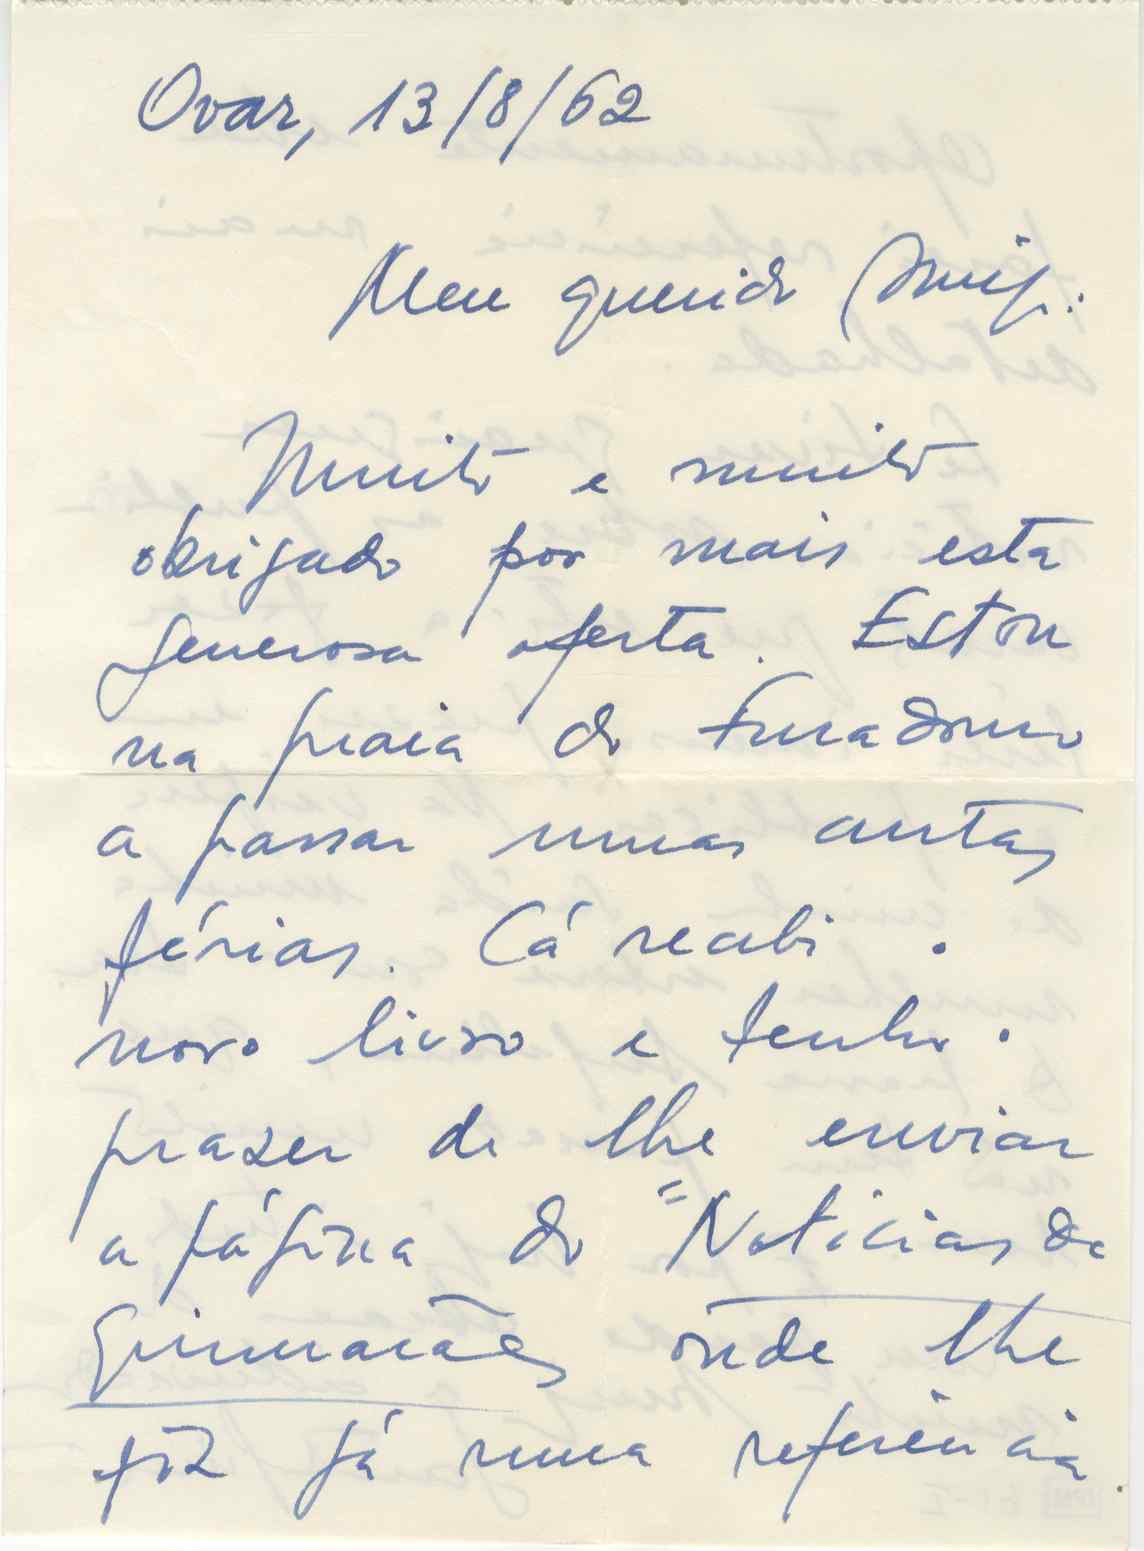 Ovar, 13/8/62
Meu querido Amigo:
Muito e muito
obrigado por mais esta
generosa oferta. Estou
na praia do Furadouro
a passar umas curtas
férias. Cá recebi o
novo livro e tenho o
prazer de lhe enviar
a página do "Notícias de
Guimarães onde lhe
fiz já uma referência.